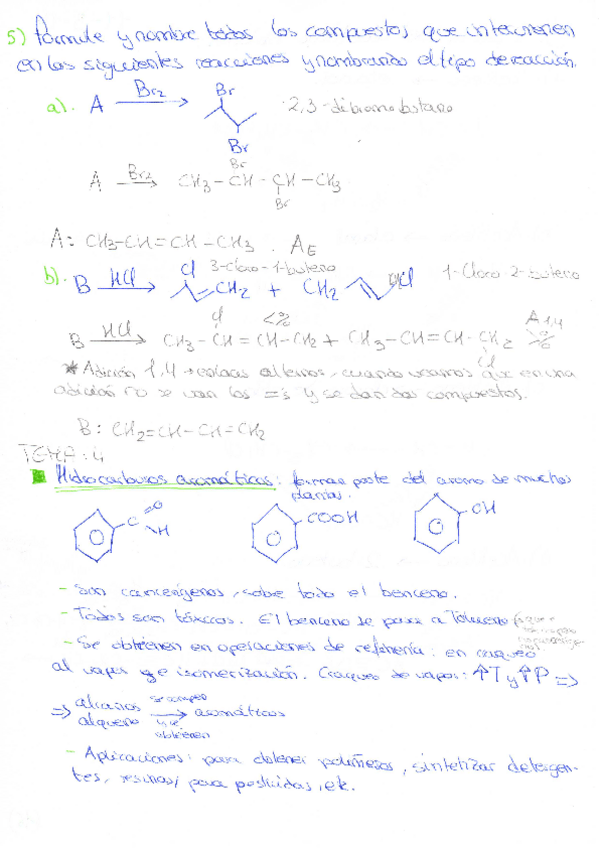 5) Formule y nombre todos los compuestos que intervienen
en las siguientes reacciones y nombrando el tipo de reacción.
a). A Br2 Br Br 2,3-dibromobutano
A Br2 CH3-CH-CH-CH3 Br Br
A: CH3-CH=CH-CH3. AE
b). B HCl Cl CH2 + CH2 Cl 3-Cloro-1-buteno 1-Cloro-2-buteno
B HCl CH3-CH=CH-CH2 + CH3-CH=CH-CH2 Cl Cl <% >% A 1,4
* Adición 1,4 → enlaces alternos, cuando veamos que en una
adición no se van los =s y se dan dos compuestos.
B: CH2=CH-CH=CH2
TEMA: 4
Hidrocarburos aromáticos: forman parte del aroma de muchas
plantas.
C O H COOH OH
- Son cancerígenos, sobre todo el benceno.
- Todos son tóxicos. El benceno se pasa a Tolueno
- Se obtienen en operaciones de refinería: en craqueo
al vapor y e isomerización. Craqueo de vapor: ↑T y ↑P =>
=> alcanos alqueno → se rompen y se obtienen aromáticos
- Aplicaciones: para obtener polímeros, sintetizar detergen-
tes, resinas, para pesticidas, etc.